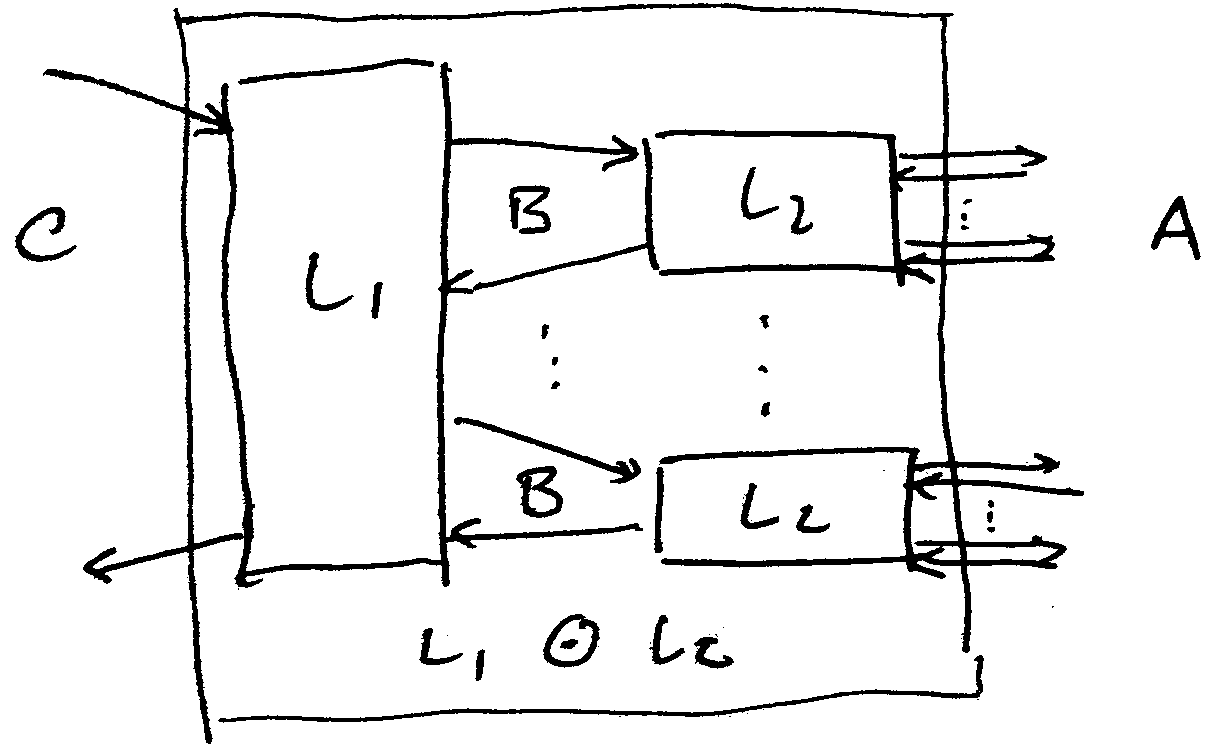 C
L₁
B
L₂
⋮
A
⋮
⋮
B
L₂
⋮
L₁ ⊙ L₂